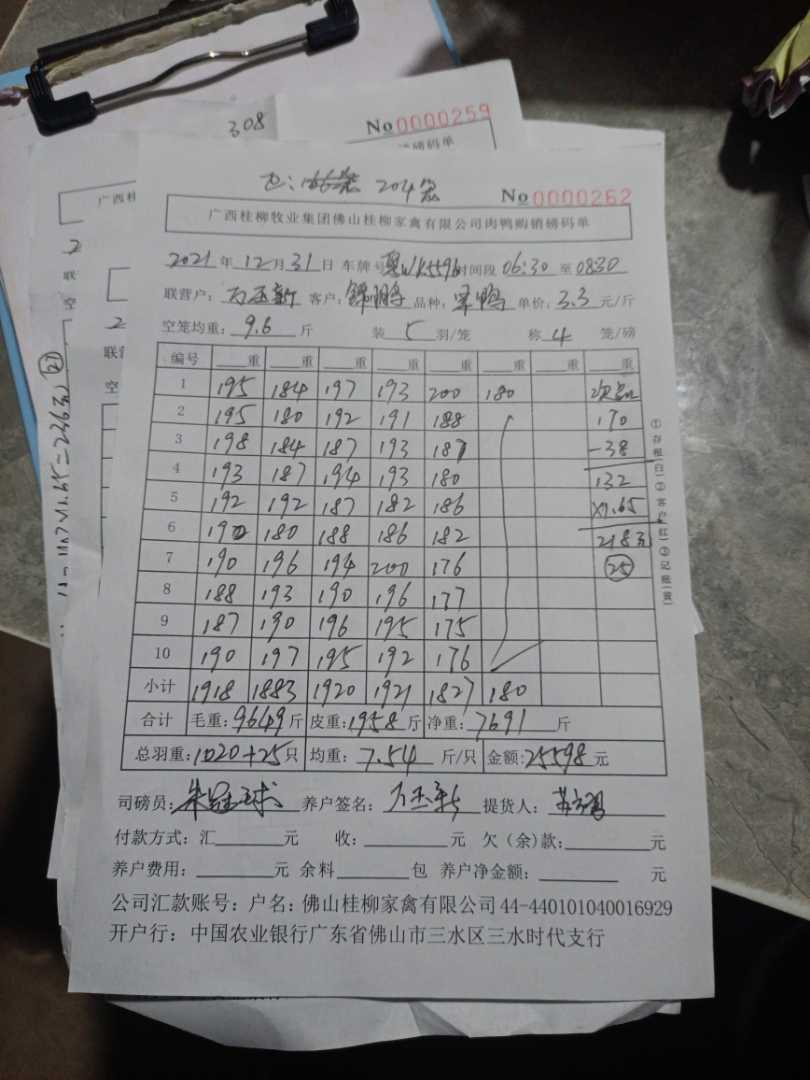 308
No 0000259
磅码单
广西
204笼
No 0000262
广西桂柳牧业集团佛山桂柳家禽有限公司肉鸭购销磅码单
2021年12月31日 车牌号 粤WK5596 时间段 06:30 至 0830
联营户: 客户: 品种: 单价: 3.3 元/斤
空笼均重: 9.6 斤 装 5 羽/笼 称 4 笼/磅
编号 重 重 重 重 重 重 重 重
1 195 184 197 193 200 180 次品
2 195 180 192 191 188 170
3 198 184 187 193 187 -38
4 193 187 194 193 180 132
5 192 192 187 182 186 X1.65
6 190 180 188 186 182 218元
7 190 196 194 200 176 25
8 188 193 190 196 177
9 187 190 196 195 175
10 190 197 195 192 176
小计 1918 1883 1920 1921 1827 180
合计 毛重: 9649 斤 皮重: 1958 斤 净重: 7691 斤
总羽重: 1020+25 只 均重: 7.54 斤/只 金额: 25598 元
司磅员: 养户签名: 提货人:
付款方式: 汇 元 收: 元 欠(余)款: 元
养户费用: 元 余料 包 养户净金额: 元
公司汇款账号: 户名: 佛山桂柳家禽有限公司 44-440101040016929
开户行: 中国农业银行广东省佛山市三水区三水时代支行
①存根(白)②客户(红)③记账(黄)